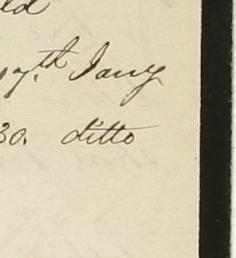 ld
17.th Jany
30. ditto